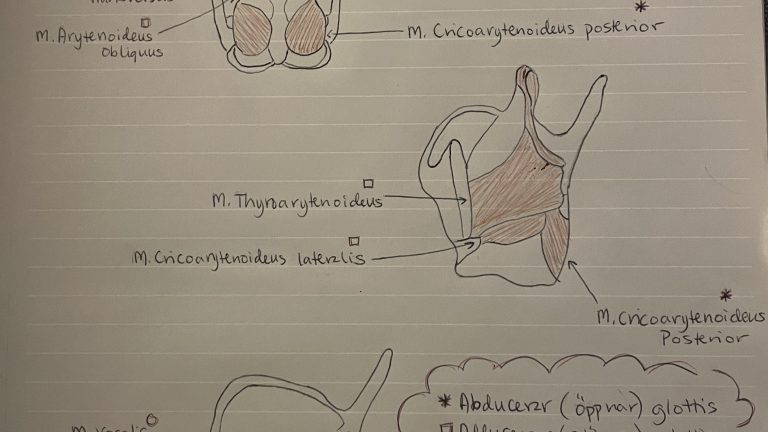 M. Arytenoideus □
obliquus
M. Cricoarytenoideus posterior *
M. Thyroarytenoideus □
M. Cricoarytenoideus lateralis □
M. Cricoarytenoideus *
Posterior
* Abducerar (öppnar) glottis